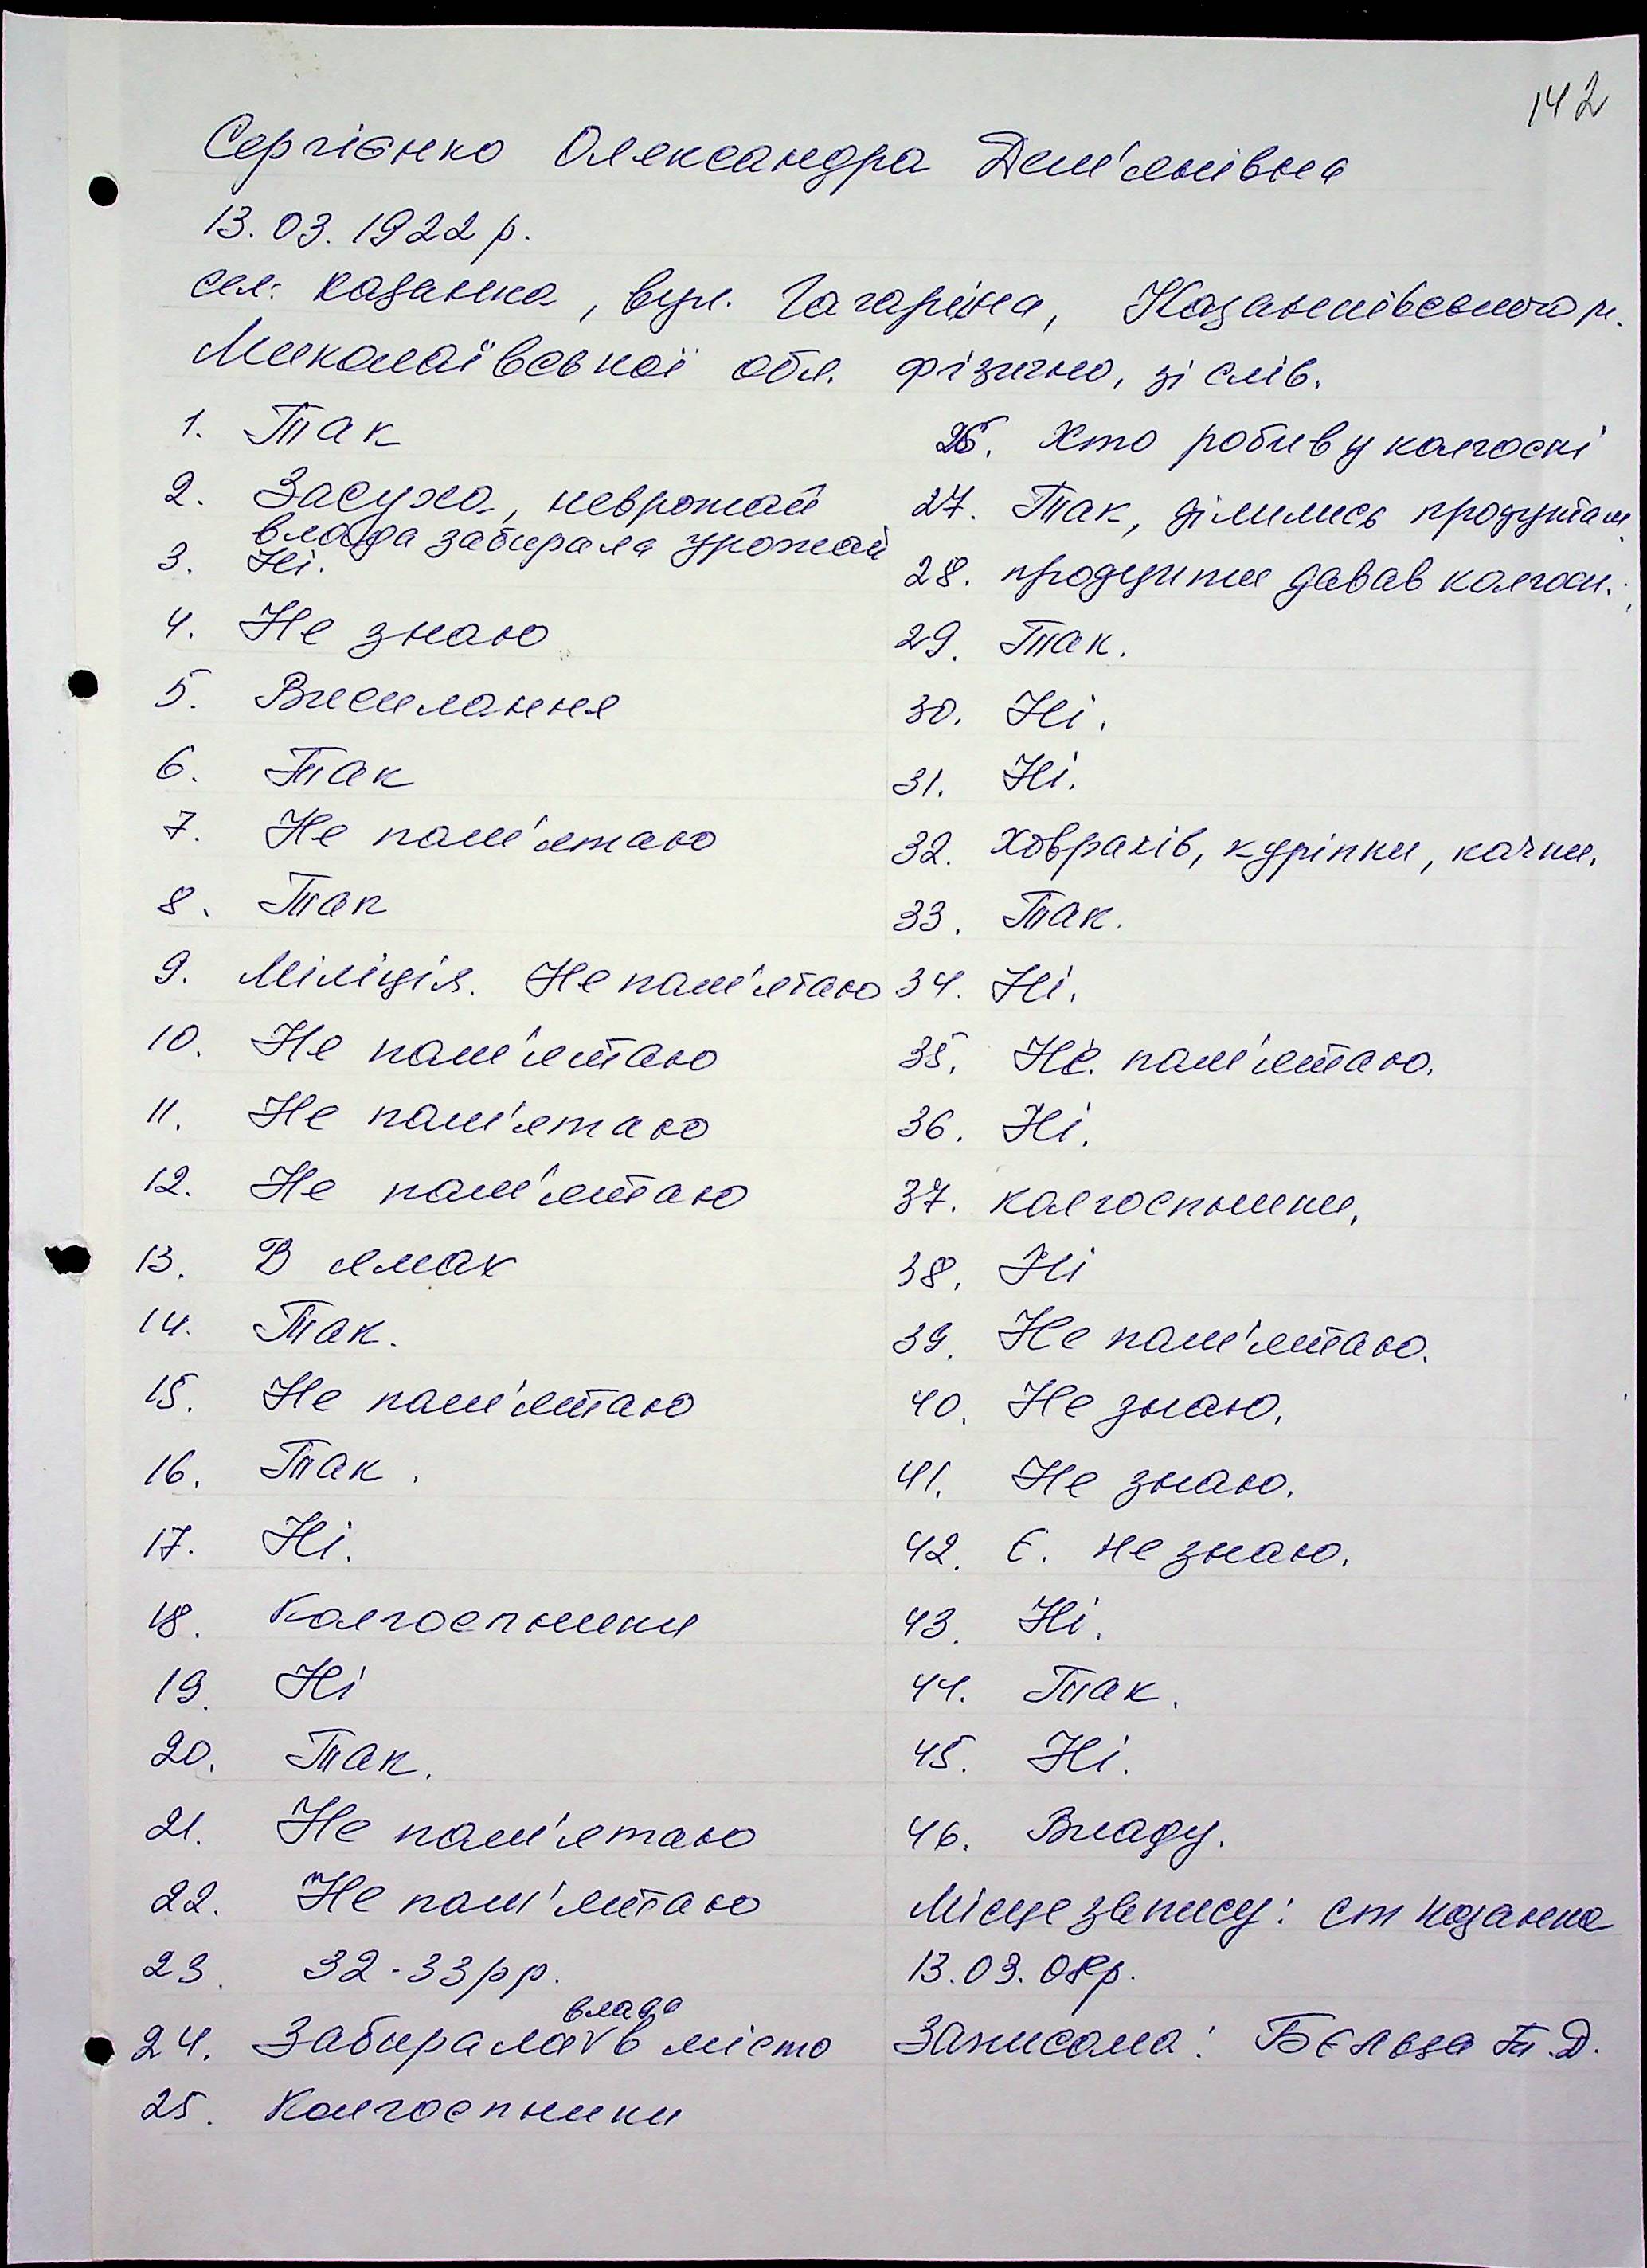 142
Сергієнко Олександра Дем'янівна
13.03.1922 р.
сел. Казанка, вул. Гагаріна, Казанківського р.
Миколаївської обл. фізично, зі слів.
1. Так
2. Засуха, неврожай
влада забирала урожай
3. Ні.
4. Не знаю
5. Висилання
6. Так
7. Не пам'ятаю
8. Так
9. Міліція. Не пам'ятаю
10. Не пам'ятаю
11. Не пам'ятаю
12. Не пам'ятаю
13. В ямах
14. Так.
15. Не пам'ятаю
16. Так.
17. Ні.
18. Колгоспники
19. Ні
20. Так.
21. Не пам'ятаю
22. Не пам'ятаю
23. 32-33 рр.
24. Забирала влада в місто
25. Колгоспники
26. Хто робив у колгоспі
27. Так, ділились продуктами.
28. продукти давав колгосп.
29. Так.
30. Ні.
31. Ні.
32. Ховрахів, куріпки, качки.
33. Так.
34. Ні.
35. Не пам'ятаю.
36. Ні.
37. колгоспники.
38. Ні
39. Не пам'ятаю.
40. Не знаю.
41. Не знаю.
42. Є. Не знаю.
43. Ні.
44. Так.
45. Ні.
46. Владу.
Місце запису: см Казанка
13.03.08р.
Записала: Бєльза Т.Д.